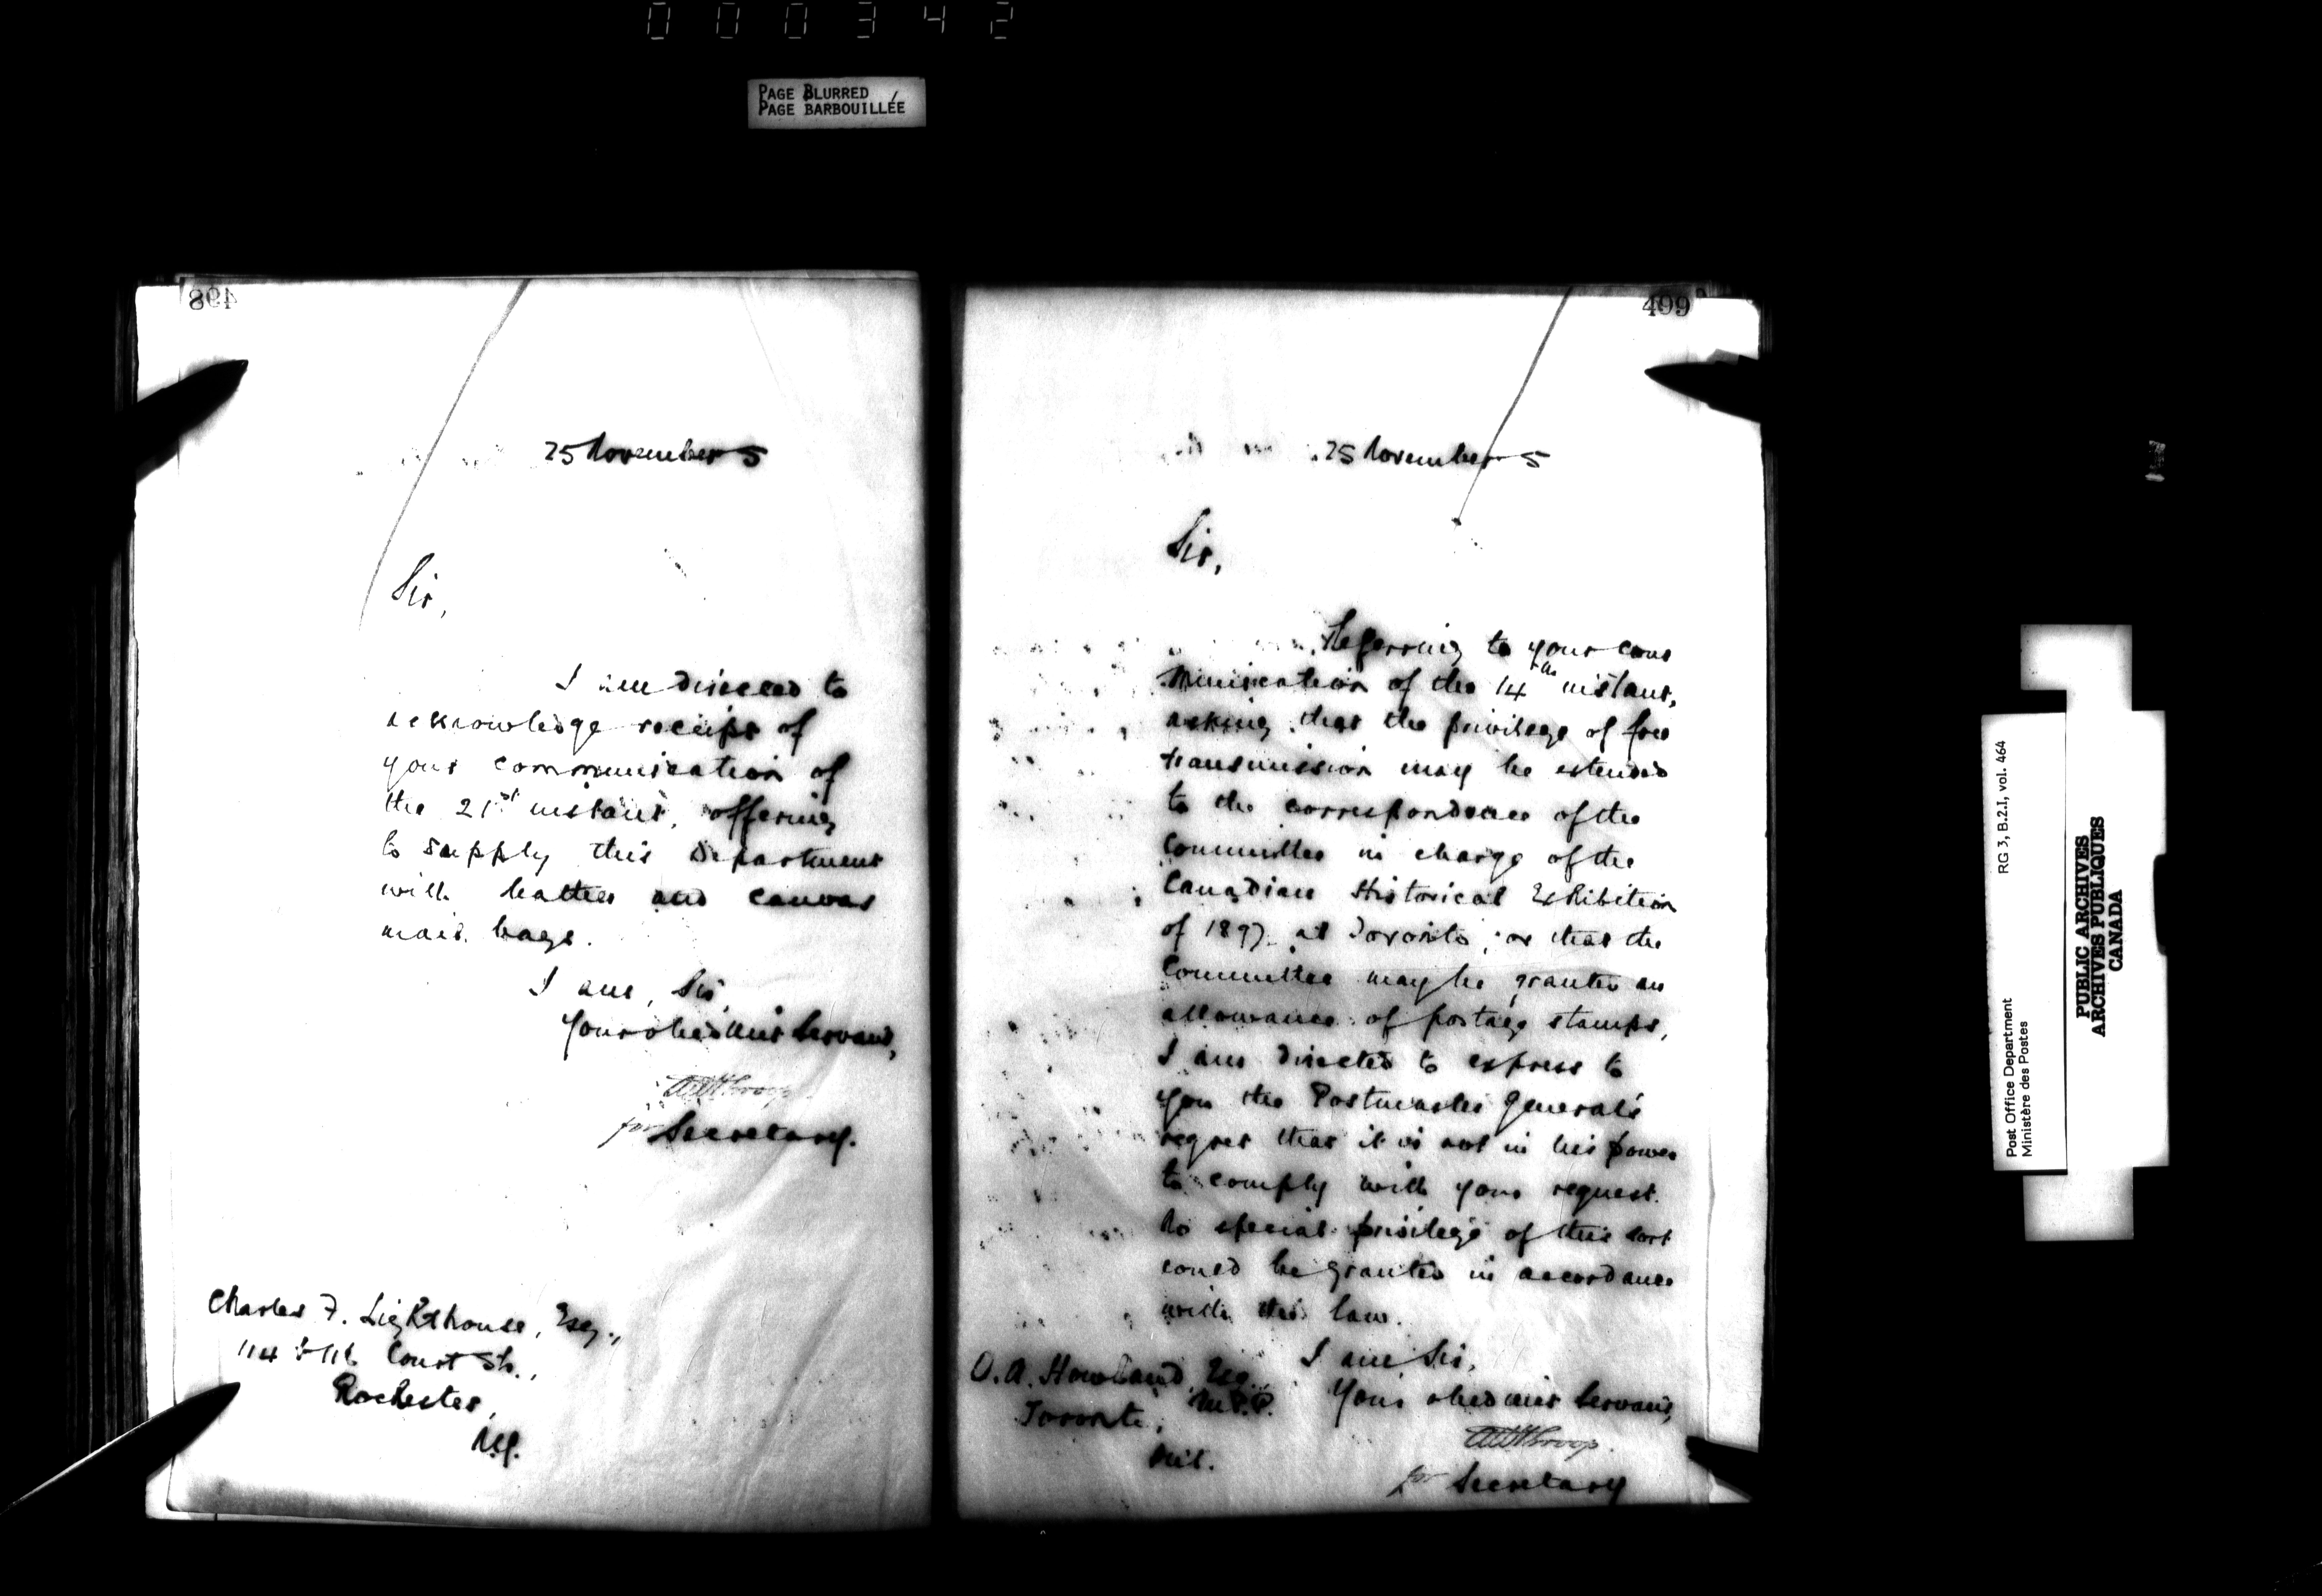 000342
PAGE BLURRED
PAGE BARBOUILLÉE
498
25 November 5
Sir,
I am directed to
acknowledge receipt of
your communication of
the 21st instant, offering
to supply this Department
with leather and canvas
mail bags.
I am, Sir,
Your obedient Servant,
for Secretary.
Charles F. Lighthouse, Esq.,
114 & 116 Court St.,
Rochester,
N.Y.
499
25 November 5
Sir,
Referring to your com
munication of the 14th instant,
asking that the privilege of free
transmission may be extended
to the correspondence of the
Committee in charge of the
Canadian Historical Exhibition
of 1897 at Toronto, or that the
Committee may be granted an
allowance of postage stamps,
I am directed to express to
you the Postmaster General's
regret that it is not in his power
to comply with your request.
No special privilege of this sort
could be granted in accordance
with the law.
I am Sir,
Your obedient Servant,
for Secretary
O. A. Howland, Esq.,
M.P.P.
Toronto,
Ont.
RG 3, B.2.I, vol. 464
Post Office Department
Ministère des Postes
PUBLIC ARCHIVES
ARCHIVES PUBLIQUES
CANADA